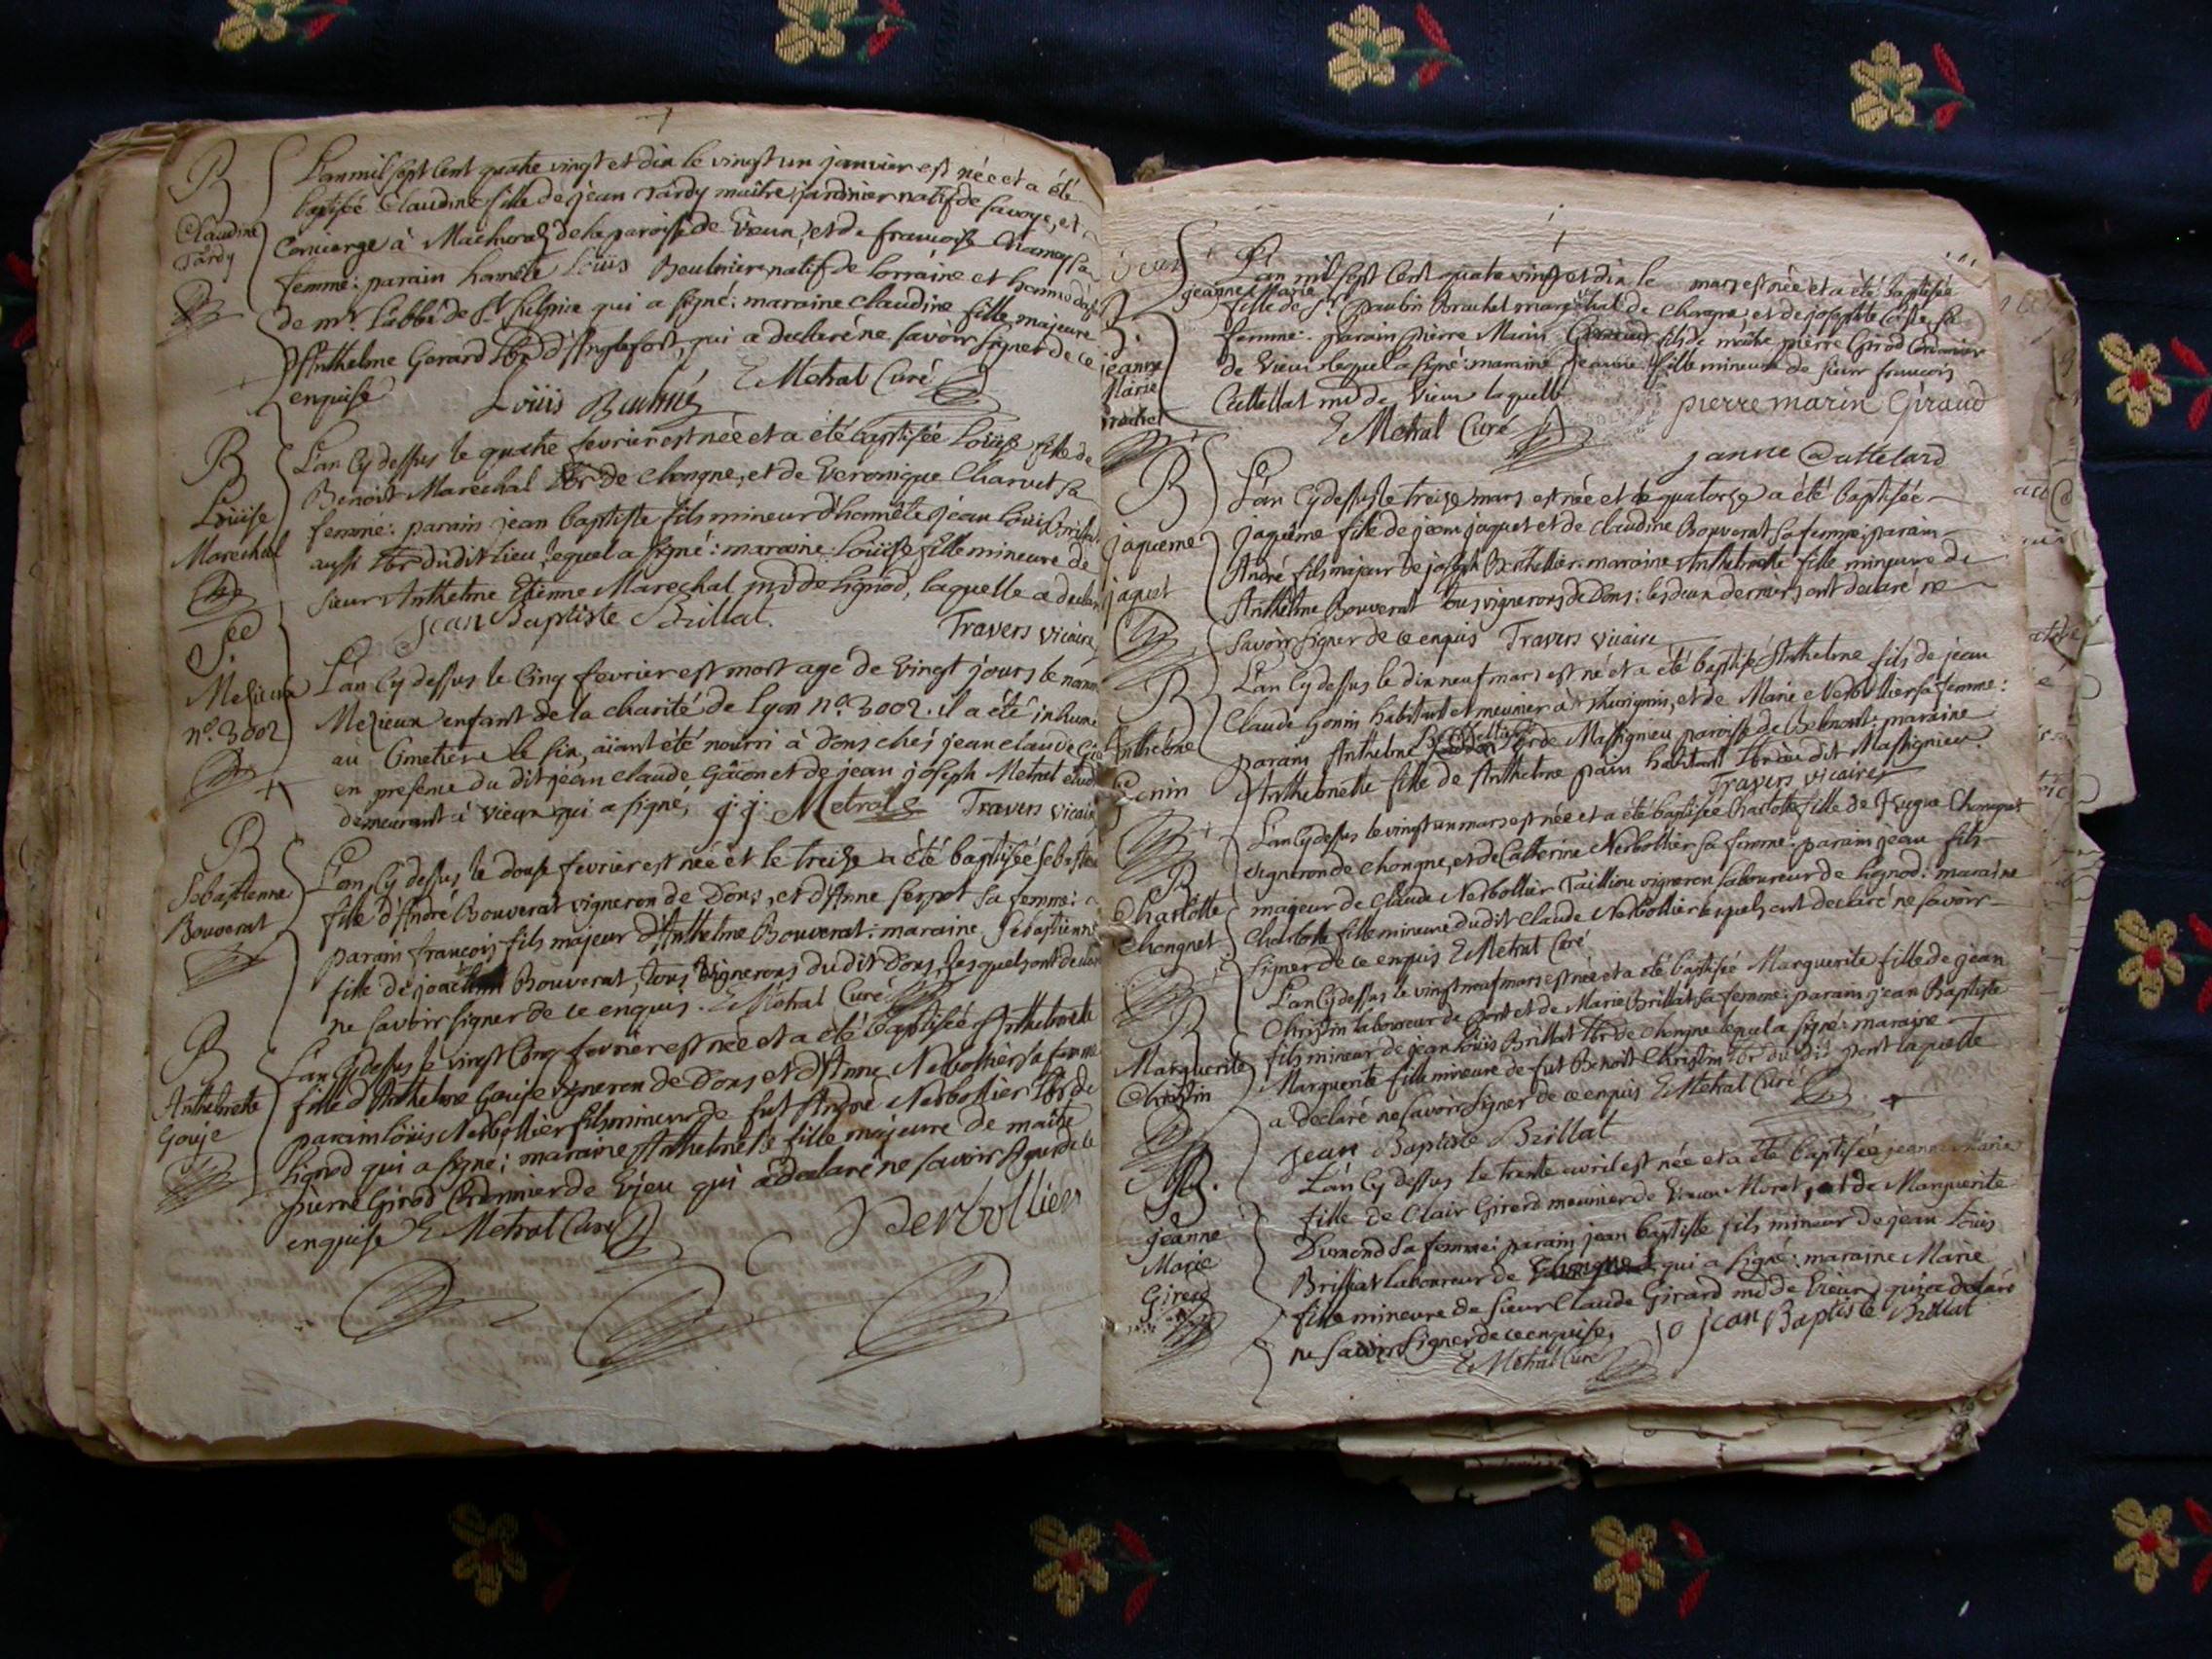 B
Claudine
Tardy
L'an mil sept cent quatre vingt et dix le vingt un janvier est née et a été
baptisée Claudine fille de jean Tardy maître jardinier natif de Savoye, et
Concierge à Machuraz de la paroisse de Vieux, et de francoise sa
femme: parain honnête Loüis natif de Lorraine et
de mr. L'abbé de St. Sulpice qui a signé: maraine Claudine fille majeure
d'Anthelme Gerard Lbr d'Anglefort, qui a declaré ne savoir signer de ce
enquise E Metral Curé
Loüis
B
Loüise
Marechal
L'an Cy dessus le quatre fevrier est née et a été baptisée Loüise fille de
Benoit Marechal Lbr de Chongne, et de Veronique Charvet sa
femme: parain jean baptiste fils mineur d'honnête jean Loüis Brillat
aussi Lbr dudit lieu, lequel a signé: maraine Loüise fille mineure de
sieur Anthelme Etienne Marechal md de Lignod, laquelle a declaré
jean Baptiste Brillat. Travers vicaire
Sre
Mezieux
no. 3002
L'an Cy dessus le Cinq fevrier est mort agé de vingt jours le nommé
Mezieux enfant de la charité de Lyon no. 3002. il a été inhumé
au Cimetiere le six, aïant été nourri à Dons chés jean claude
en presence du dit jean Claude Gâcon et de jean joseph Metral
demeurant à Vieux qui a signé, j. j. Metral Travers vicaire
B
Sebastienne
Bouverat
L'an Cy dessus le douse fevrier est née et le treize a été baptisée Sebastienne
fille d'André Bouverat vigneron de Dons, et d'Anne Serpot sa femme:
parain francois fils majeur d'Anthelme Bouverat: maraine Sebastienne
fille de Bouverat, tous vignerons dudit Dons, lesquels ont declaré
ne savoir signer de ce enquis. E Metral Curé
B
Anthelmette
Gouje
L'an Cy dessus le vingt Cinq fevrier est née et a été baptisée Anthelmette
fille d'Anthelme Gouje vigneron de Dons et d'Anne Nerbollier sa femme
parain Loüis Nerbollier fils mineur de fut André Nerbollier Lbr de
Lignod qui a signé; maraine Anthelmette fille majeure de maître
pierre Girod Cordonnier de Vieu qui a declaré ne savoir signer de ce
enquise E Metral Curé Nerbollier
B
jeanne
Marie
Brachet
L'an mil sept Cent quatre vingt et dix le mars est née et a été baptisée
jeanne Marie fille de Sr. paulin Brachet marechal de Chongne, et de josephte Coste sa
femme: parain pierre Marin fils de maître pierre Girod Cordonnier
de Vieu lequel a signé: maraine jeanne fille mineure de sieur francois
Cattellat md de Vieu laquelle pierre marin Giraud
E Metral Curé
janne Cattelard
B
jaqueme
jaquet
L'an Cy dessus le treize mars est née et le quatorze a été baptisée
jaquême fille de jean jaquet et de Claudine Bouverat sa femme: parain
André fils majeur de joseph Berthellier: maraine Anthelmette fille mineure de
Anthelme Bouverat tous vignerons de Dons: les deux derniers ont declaré ne
savoir signer de ce enquis Travers vicaire
B
Anthelme
Gonin
L'an Cy dessus le dix neuf mars est né et a été baptisé Anthelme fils de jean
Claude Gonin habitant et meunier à Thurignin, et de Marie Nerbollier sa femme:
parain Anthelme Lbr de Massignieu paroisse de Belmont: maraine
Anthelmette fille de Anthelme pain habitant Lbr du dit Massignieu.
Travers vicaire
B
Charlotte
Chongnet
L'an Cy dessus le vingt un mars est née et a été baptisée Charlotte fille de Hugue Chongnet
vigneron de Chongne, et de Catherine Nerbollier sa femme: parain jean fils
majeur de Claude Nerbollier Taillieu vigneron laboureur de Lignod: maraine
Charlotte fille mineure du dit Claude Nerbollier lesquels ont declaré ne savoir
signer de ce enquis E Metral Curé
B
Marguerite
Christin
L'an Cy dessus le vingt neuf mars est née et a été baptisée Marguerite fille de jean
Christin laboureur de pont et de Marie Brillat sa femme: parain jean Baptiste
fils mineur de jean Loüis Brillat Lbr de Chongne lequel a signé: maraine
Marguerite fille mineure de fut Benoit Christin Lbr du dit pont laquelle
a declaré ne savoir signer de ce enquis E Metral Curé
jean Baptiste Brillat
B.
jeanne
Marie
Girerd
L'an Cy dessus le trente avril est née et a été baptisée jeanne Marie
fille de Clair Girerd meunier de Vieux Moret, et de Marguerite
Dumond sa femme: parain jean baptiste fils mineur de jean Loüis
Brillat laboureur de Chongne qui a signé: maraine Marie
fille mineure de sieur Claude Girard md de Vieu qui a declaré
ne savoir signer de ce enquise, jean Baptiste Brillat
E Metral Curé